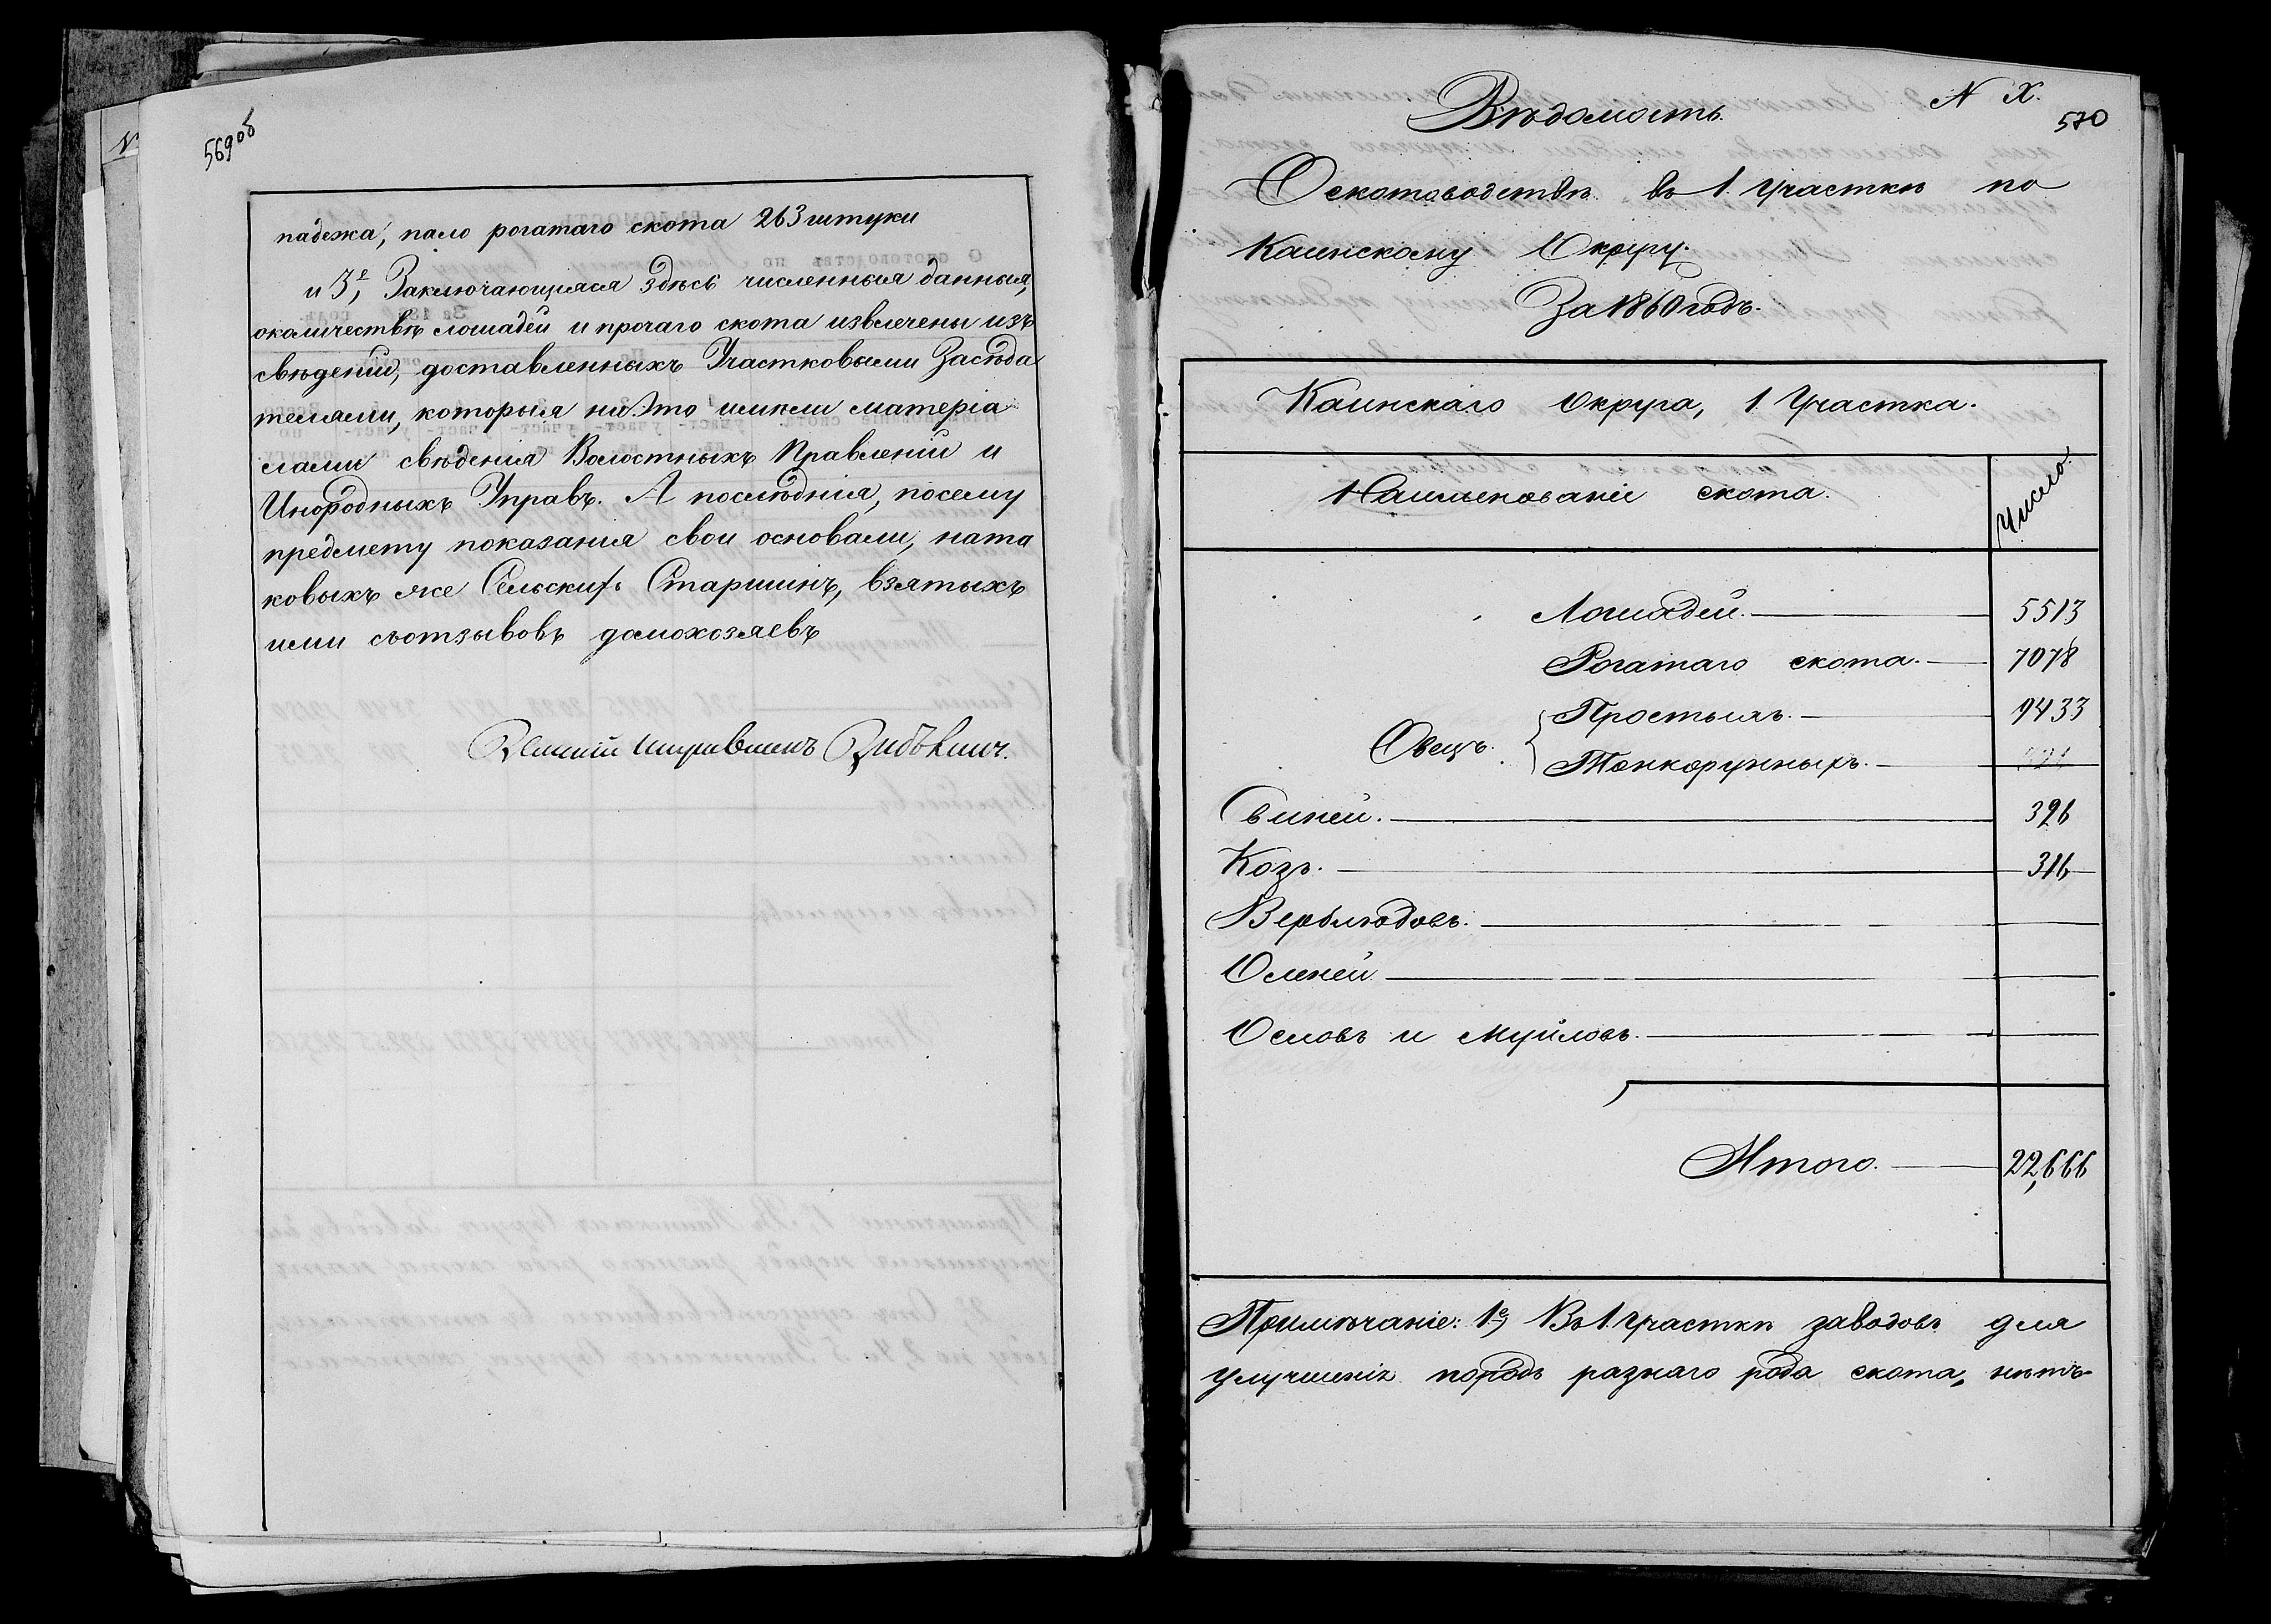 569 об
падежа, пало рогатаго скота 263 штуки
и 3е, Заключающіяся здѣсь численныя данныя,
околичествѣ лошадей и прочаго скота извлечены изъ
свѣдений, доставленныхъ Участковыми Засѣда
телями, которыя на Это имѣли матеріа
лами свѣденія Волостныхъ Правленій и
Инородныхъ Управъ. А послѣднія, посему
предмету показанія свои основали, ната
ковыхъ же Сельскихъ Старшинъ, взятыхъ
ими съотзывовъ домохозяевъ
N X.
570
Вѣдомость.
Оскотоводствѣ въ 1. Участкѣ по
Каинскому Округу.
За 1860 годъ.
Каинскаго Округа, 1. Участка.
Наименованіе скота. Число.
Лошадей. 5513
Рогатаго скота. 7078
Овецъ. Простыхъ. 9433
Тонкорунныхъ.
Свиней. 326
Козъ. 316
Верблюдовъ.
Оленей
Ословъ и Муиловъ.
Итого. 22,666
Примѣчаніе: 1е, Въ 1. Участкѣ заводовъ для
улучшенія породъ разнаго рода скота, нѣтъ